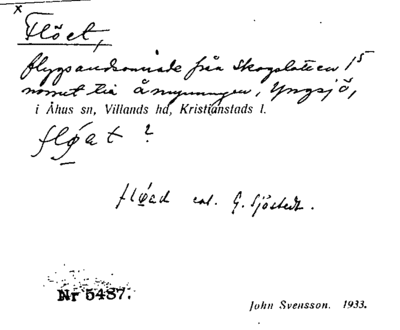 x
Flöet,
flygsandsområde från Skogsloten 15
norrut till åmynningen, Yngsjö,
i Åhus sn, Villands hd, Kristianstads l.
fløat ?
fløad enl. G. Sjöstedt.
Nr 5487.
John Svensson. 1933.